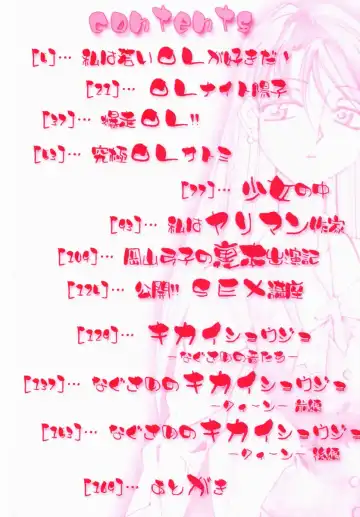 contents
[1]… 私は若いOLが好きだ!
[21]… OLナイト鳴子
[37]… 爆走OL!!
[63]… 究極OLサトミ
[77]… 少女の中
[93]… 私はヤリマン作家
[109]… 岡山弓子の裏本出演記
[124]… 公開!! SEX講座
[129]… キカイショウジョ
―なぐさめの者たち―
[137]… なぐさめのキカイショウジョ
―クィーン― 前編
[143]… なぐさめのキカイショウジョ
―クィーン― 後編
[169]… あとがき